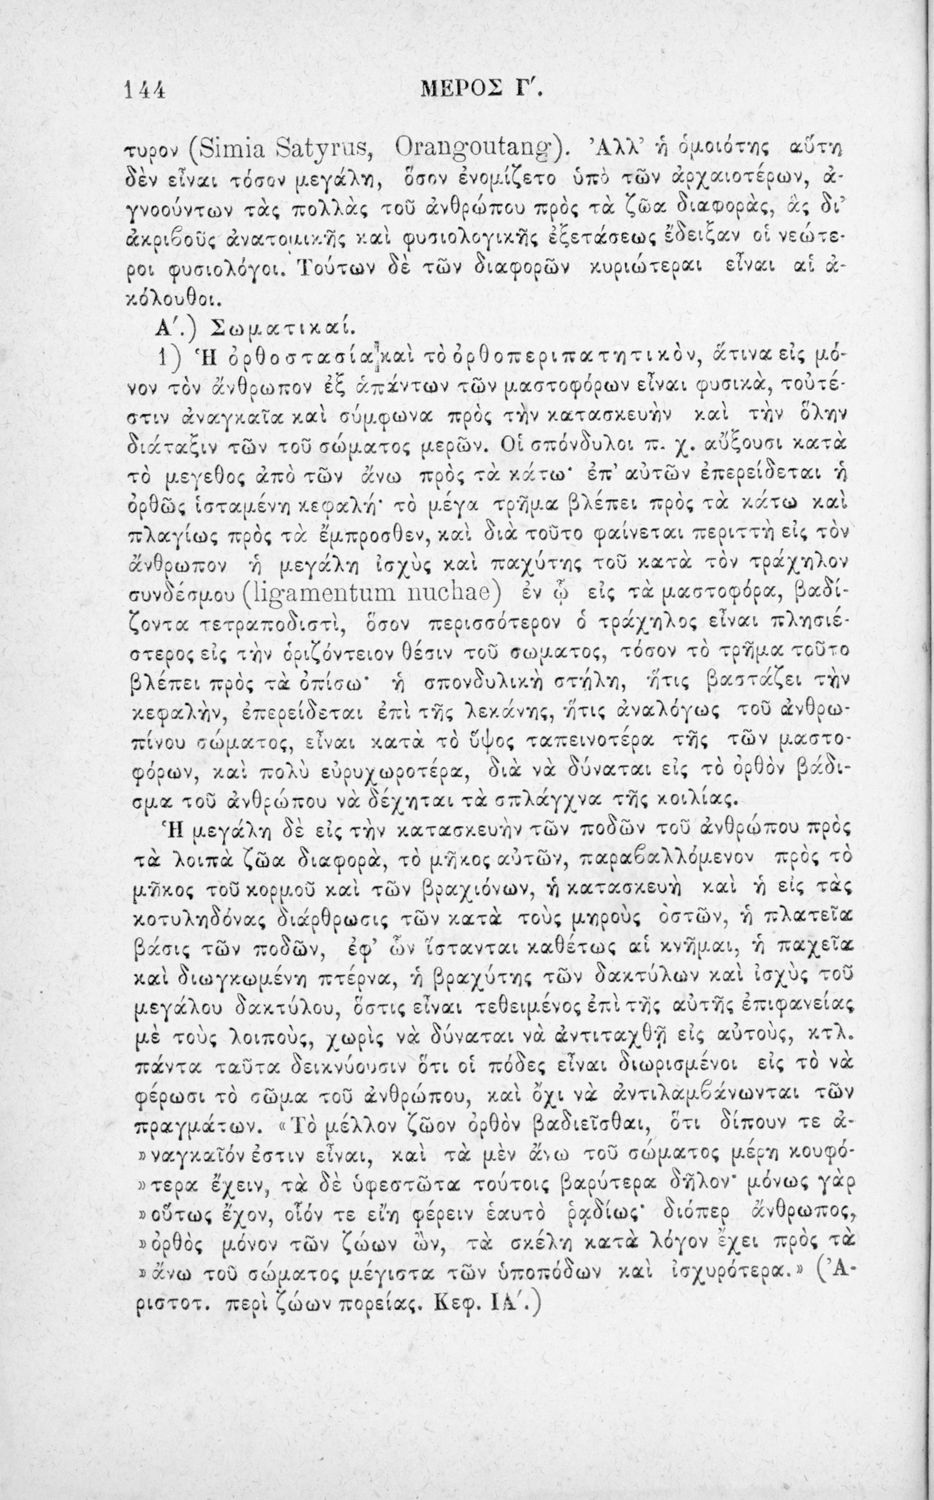 144 ΜΕΡΟΣ Γ΄.
τυρον (Simia Satyrus, Orangoutang). Ἀλλ’ ἡ ὁμοιότης αὕτη
δὲν εἶναι τόσον μεγάλη, ὅσον ἐνομίζετο ὑπὸ τῶν ἀρχαιοτέρων, ἀ-
γνοούντων τὰς πολλὰς τοῦ ἀνθρώπου πρὸς τὰ ζῶα διαφορὰς, ἃς δι’
ἀκριβοῦς ἀνατομικῆς καὶ φυσιολογικῆς ἐξετάσεως ἔδειξαν οἱ νεώτε-
ροι φυσιολόγοι. Τούτων δὲ τῶν διαφορῶν κυριώτεραι εἶναι αἱ ἀ-
κόλουθοι.
Α΄.) Σωματικαί.
1) Ἡ ὀρθοστασία καὶ τὸ ὀρθοπεριπατητικὸν, ἅτινα εἰς μό-
νον τὸν ἄνθρωπον ἐξ ἁπάντων τῶν μαστοφόρων εἶναι φυσικὰ, τοὐτέ-
στιν ἀναγκαῖα καὶ σύμφωνα πρὸς τὴν κατασκευὴν καὶ τὴν ὅλην
διάταξιν τῶν τοῦ σώματος μερῶν. Οἱ σπόνδυλοι π. χ. αὔξουσι κατὰ
τὸ μεγεθος ἀπὸ τῶν ἄνω πρὸς τὰ κάτω· ἐπ’ αὐτῶν ἐπερείδεται ἡ
ὀρθῶς ἱσταμένη κεφαλή· τὸ μέγα τρῆμα βλέπει πρὸς τὰ κάτω καὶ
πλαγίως πρὸς τὰ ἔμπροσθεν, καὶ διὰ τοῦτο φαίνεται περιττὴ εἰς τὸν
ἄνθρωπον ἡ μεγάλη ἰσχὺς καὶ παχύτης τοῦ κατὰ τὸν τράχηλον
συνδέσμου (ligamentum nuchae) ἐν ᾧ εἰς τὰ μαστοφόρα, βαδί-
ζοντα τετραποδιστὶ, ὅσον περισσότερον ὁ τράχηλος εἶναι πλησιέ-
στερος εἰς τὴν ὁριζόντειον θέσιν τοῦ σωματος, τόσον τὸ τρῆμα τοῦτο
βλέπει πρὸς τὰ ὀπίσω· ἡ σπονδυλικὴ στήλη, ἥτις βαστάζει τὴν
κεφαλὴν, ἐπερείδεται ἐπὶ τῆς λεκάνης, ἥτις ἀναλόγως τοῦ ἀνθρω-
πίνου σώματος, εἶναι κατὰ τὸ ὕψος ταπεινοτέρα τῆς τῶν μαστο-
φόρων, καὶ πολὺ εὐρυχωροτέρα, διὰ νὰ δύναται εἰς τὸ ὀρθὸν βάδι-
σμα τοῦ ἀνθρώπου νὰ δέχηται τὰ σπλάγχνα τῆς κοιλίας.
Ἡ μεγάλη δὲ εἰς τὴν κατασκευὴν τῶν ποδῶν τοῦ ἀνθρώπου πρὸς
τὰ λοιπὰ ζῶα διαφορὰ, τὸ μῆκος αὐτῶν, παραβαλλόμενον πρὸς τὸ
μῆκος τοῦ κορμοῦ καὶ τῶν βραχιόνων, ἡ κατασκευὴ καὶ ἡ εἰς τὰς
κοτυληδόνας διάρθρωσις τῶν κατὰ τοὺς μηροὺς ὀστῶν, ἡ πλατεῖα
βάσις τῶν ποδῶν, ἐφ’ ὧν ἵστανται καθέτως αἱ κνῆμαι, ἡ παχεῖα
καὶ διωγκωμένη πτέρνα, ἡ βραχύτης τῶν δακτύλων καὶ ἰσχὺς τοῦ
μεγάλου δακτύλου, ὅστις εἶναι τεθειμένος ἐπὶ τῆς αὐτῆς ἐπιφανείας
μὲ τοὺς λοιποὺς, χωρὶς νὰ δύναται νὰ ἀντιταχθῇ εἰς αὐτοὺς, κτλ.
πάντα ταῦτα δεικνύουσιν ὅτι οἱ πόδες εἶναι διωρισμένοι εἰς τὸ νὰ
φέρωσι τὸ σῶμα τοῦ ἀνθρώπου, καὶ ὄχι νὰ ἀντιλαμβάνωνται τῶν
πραγμάτων. «Τὸ μέλλον ζῶον ὀρθὸν βαδιεῖσθαι, ὅτι δίπουν τε ἀ-
»ναγκαῖόν ἐστιν εἶναι, καὶ τὰ μὲν ἄνω τοῦ σώματος μέρη κουφό-
»τερα ἔχειν, τὰ δὲ ὑφεστῶτα τούτοις βαρύτερα δῆλον· μόνως γὰρ
»οὕτως ἔχον, οἷόν τε εἴη φέρειν ἑαυτὸ ῥᾳδίως· διόπερ ἄνθρωπος,
»ὀρθὸς μόνον τῶν ζώων ὢν, τὰ σκέλη κατὰ λόγον ἔχει πρὸς τὰ
»ἄνω τοῦ σώματος μέγιστα τῶν ὑποπόδων καὶ ἰσχυρότερα.» (Ἀ-
ριστοτ. περὶ ζώων πορείας. Κεφ. ΙΑ΄.)